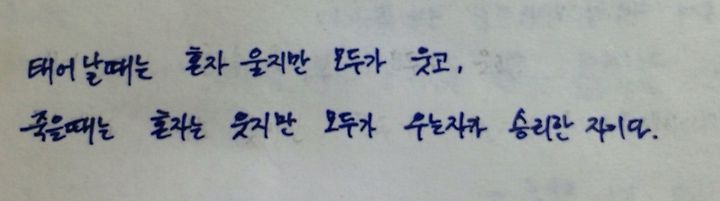 태어날때는 혼자 울지만 모두가 웃고,
죽을때는 혼자는 웃지만 모두가 우는자가 승리한 자이다.